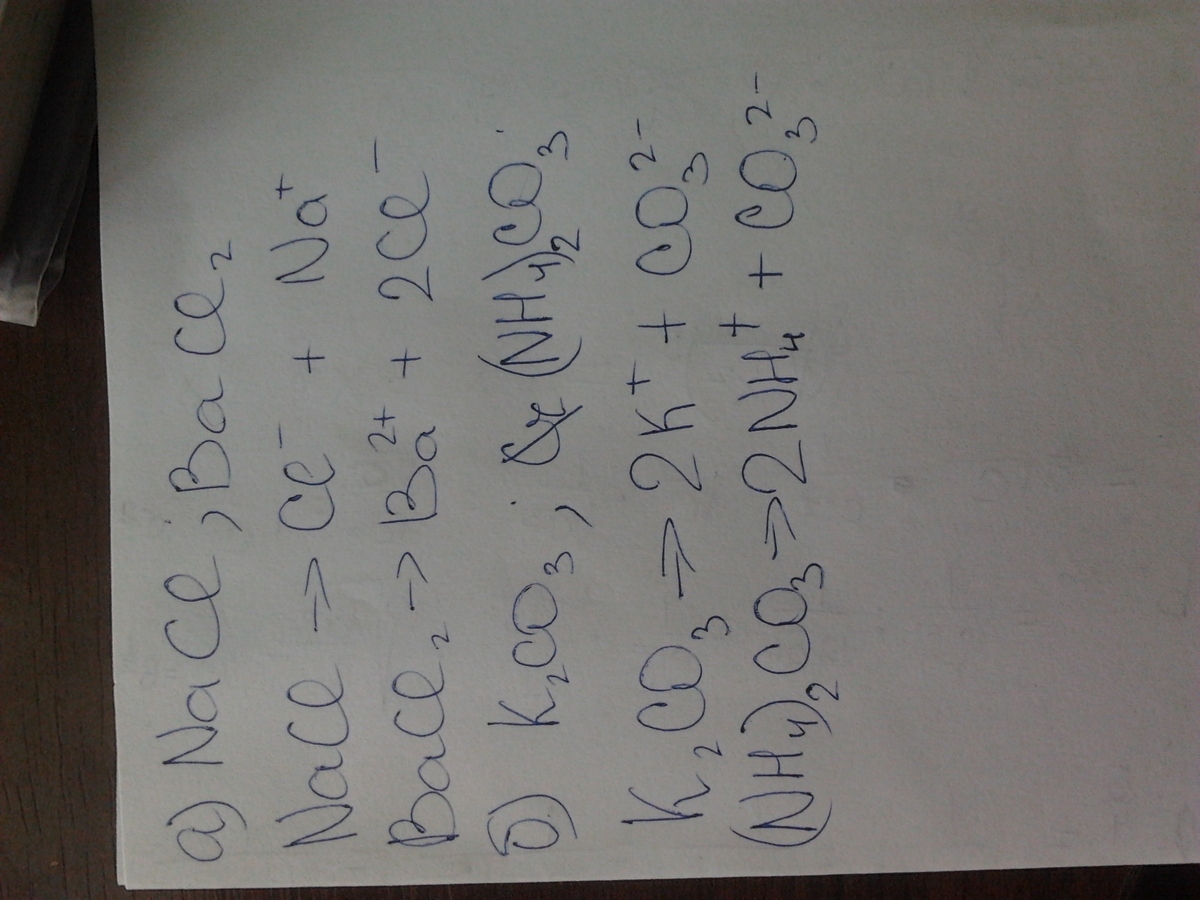 а) NaCl; BaCl₂
NaCl → Cl⁻ + Na⁺
BaCl₂ → Ba²⁺ + 2Cl⁻
б) K₂CO₃; (NH₄)₂CO₃
K₂CO₃ → 2K⁺ + CO₃²⁻
(NH₄)₂CO₃ → 2NH₄⁺ + CO₃²⁻